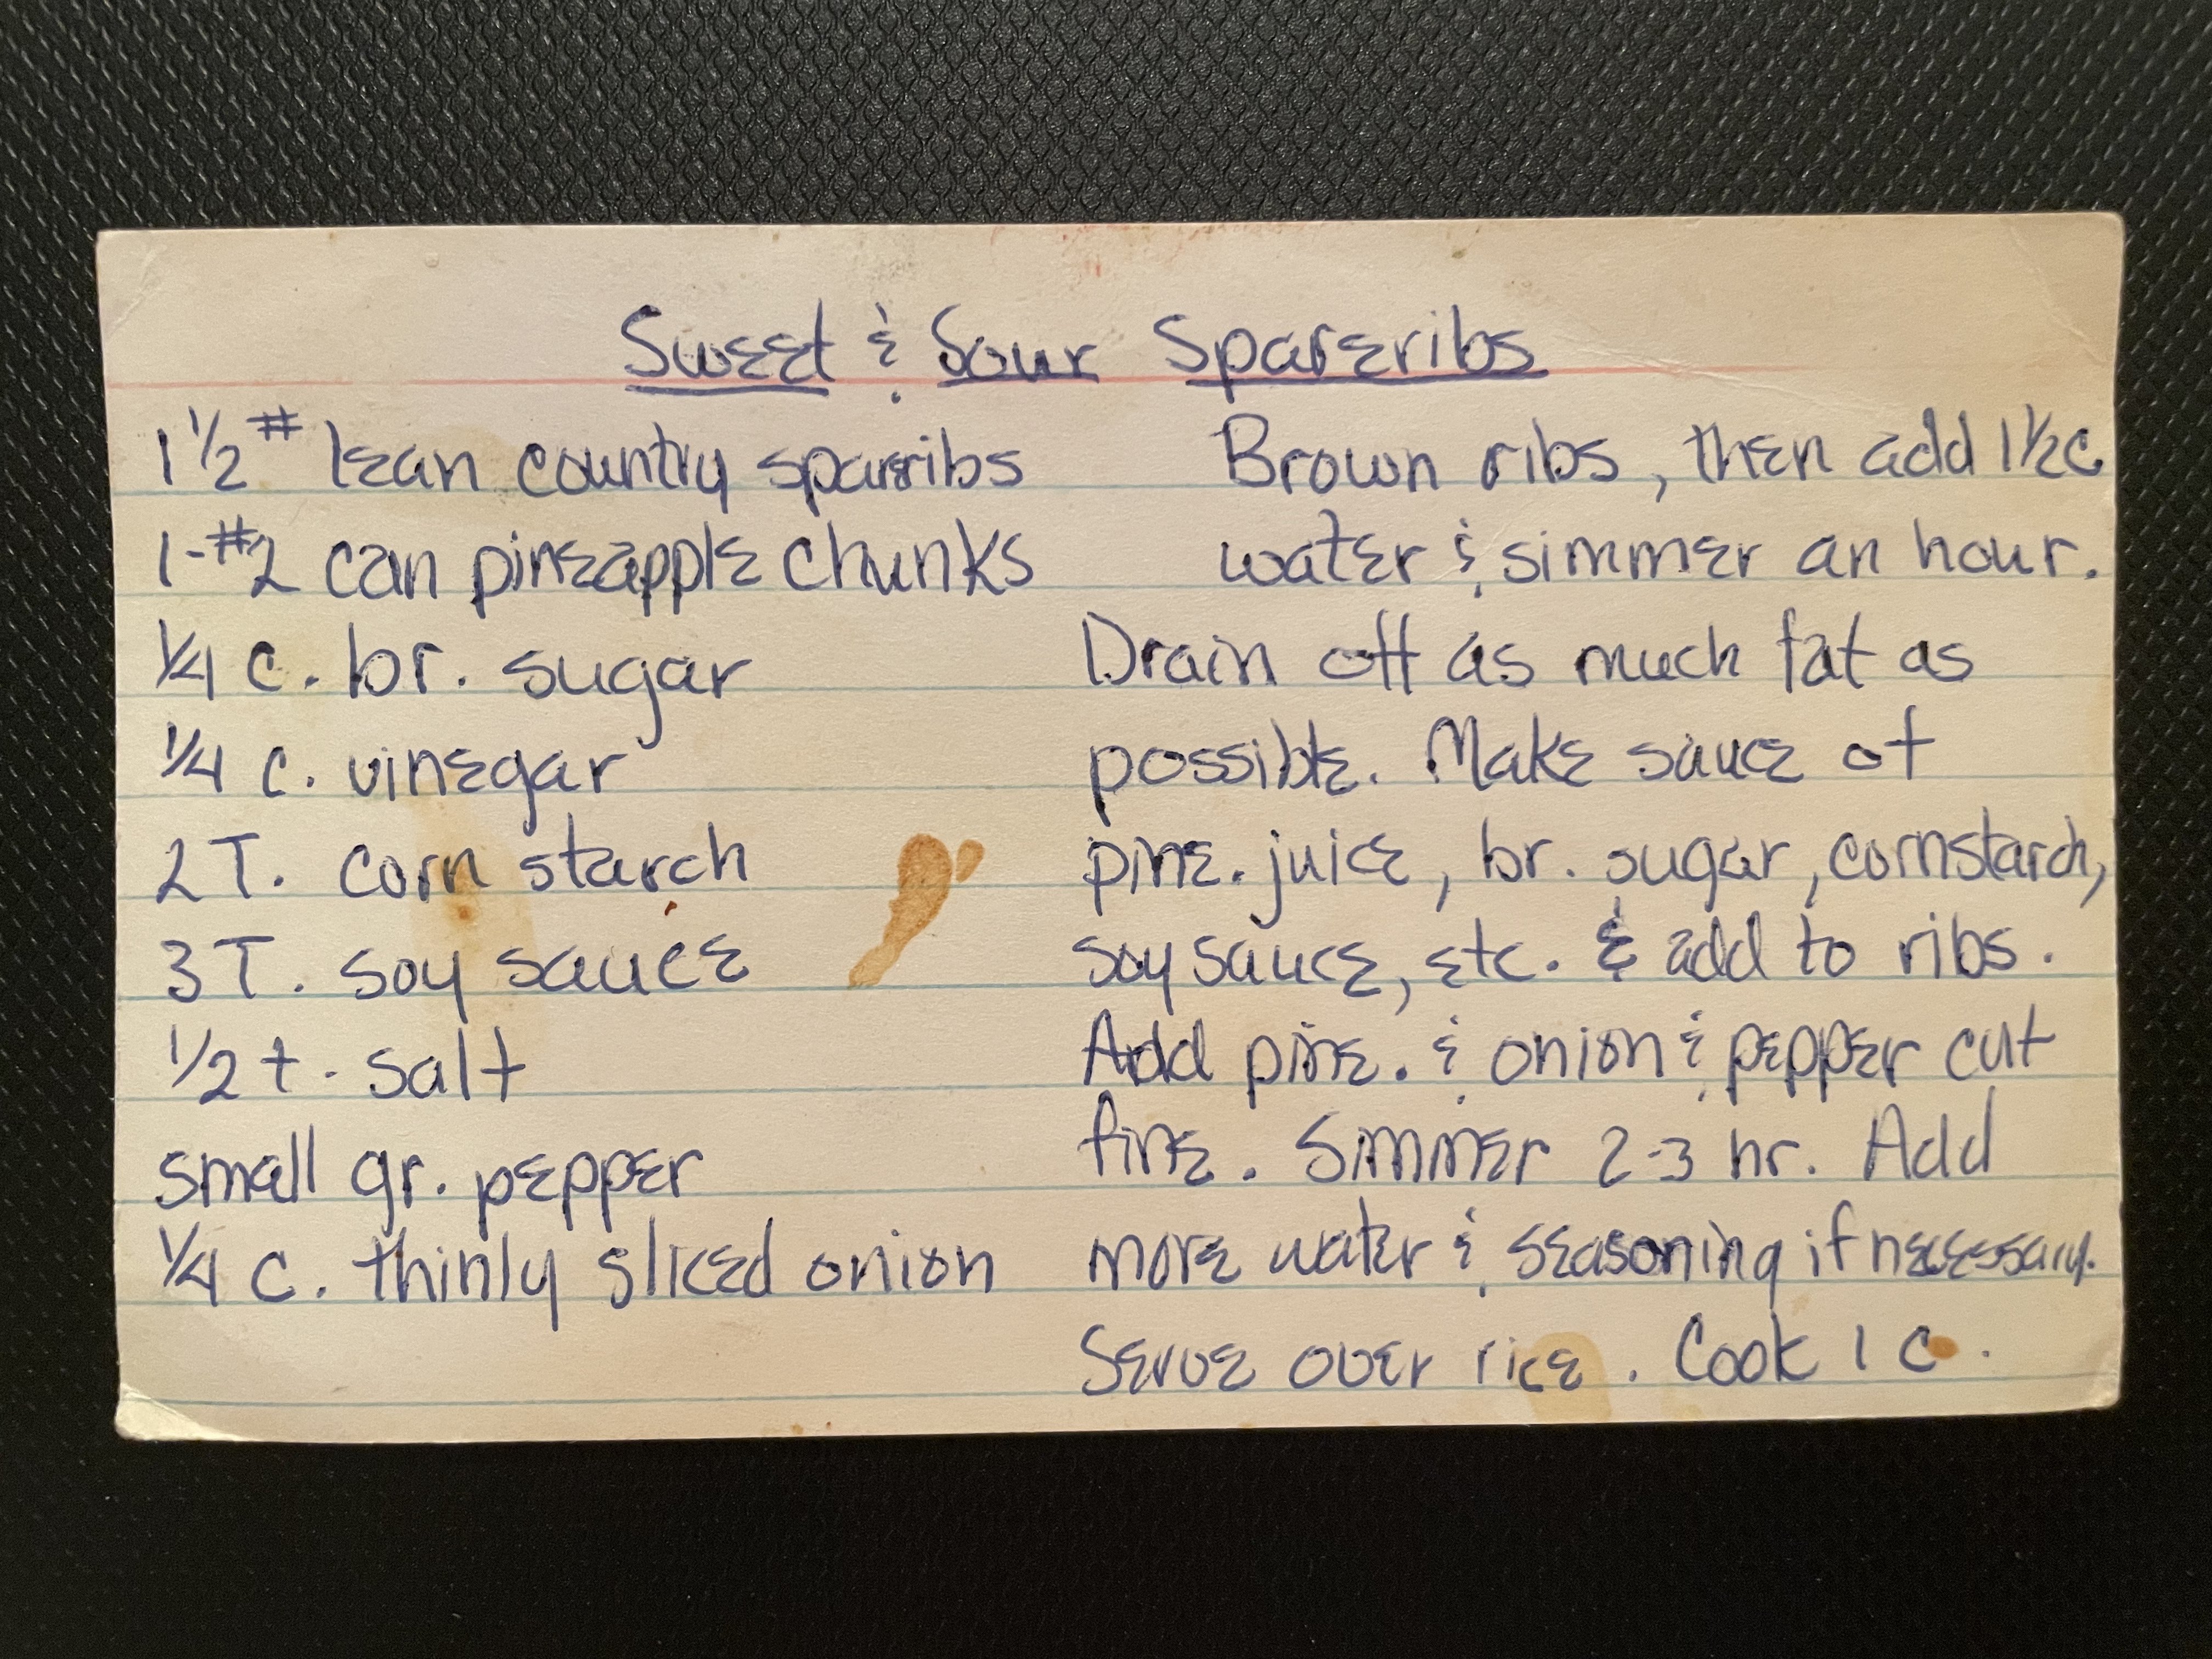 Sweet & Sour Spareribs
1 1/2 # lean country spareribs
1-#2 can pineapple chunks
1/4 c. br. sugar
1/4 c. vinegar
2 T. corn starch
3 T. soy sauce
1/2 t. salt
small gr. pepper
1/4 c. thinly sliced onion
Brown ribs, then add 1 1/2 c
water & simmer an hour.
Drain off as much fat as
possible. Make sauce of
pine. juice, br. sugar, cornstarch,
soy sauce, etc. & add to ribs.
Add pine. & onion & pepper cut
fine. Simmer 2-3 hr. Add
more water & seasoning if necessary.
Serve over rice. Cook 1 c.